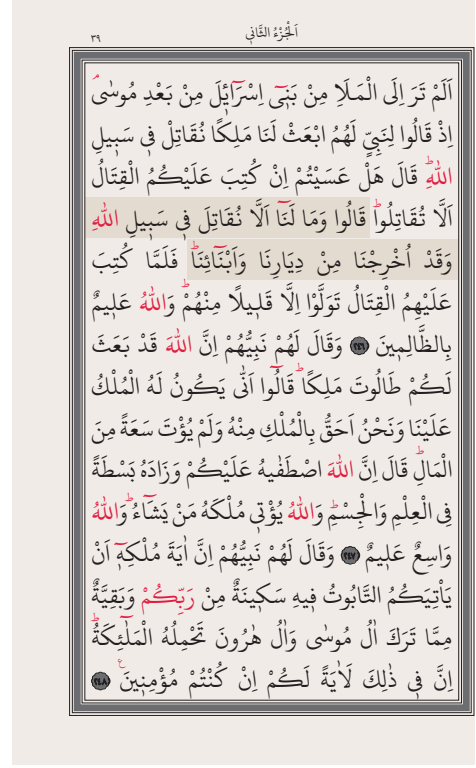 اَلْجُزْءُ الثَّانِي
٣٩
اَلَمْ تَرَ اِلَى الْمَلَاِ مِنْ بَنٖٓى اِسْرَٓائٖلَ مِنْ بَعْدِ مُوسٰىۘ
اِذْ قَالُوا لِنَبِىٍّ لَهُمُ ابْعَثْ لَنَا مَلِكًا نُقَاتِلْ فٖى سَبٖيلِ
اللّٰهِؕ قَالَ هَلْ عَسَيْتُمْ اِنْ كُتِبَ عَلَيْكُمُ الْقِتَالُ
اَلَّا تُقَاتِلُواؕ قَالُوا وَمَا لَنَٓا اَلَّا نُقَاتِلَ فٖى سَبٖيلِ اللّٰهِ
وَقَدْ اُخْرِجْنَا مِنْ دِيَارِنَا وَاَبْنَٓائِنَاؕ فَلَمَّا كُتِبَ
عَلَيْهِمُ الْقِتَالُ تَوَلَّوْا اِلَّا قَلٖيلًا مِنْهُمْؕ وَاللّٰهُ عَلٖيمٌ
بِالظَّالِمٖينَ ﴿٢٤٦﴾ وَقَالَ لَهُمْ نَبِيُّهُمْ اِنَّ اللّٰهَ قَدْ بَعَثَ
لَكُمْ طَالُوتَ مَلِكًاؕ قَالُٓوا اَنّٰى يَكُونُ لَهُ الْمُلْكُ
عَلَيْنَا وَنَحْنُ اَحَقُّ بِالْمُلْكِ مِنْهُ وَلَمْ يُؤْتَ سَعَةً مِنَ
الْمَالِؕ قَالَ اِنَّ اللّٰهَ اصْطَفٰيهُ عَلَيْكُمْ وَزَادَهُ بَسْطَةً
فِى الْعِلْمِ وَالْجِسْمِؕ وَاللّٰهُ يُؤْتٖى مُلْكَهُ مَنْ يَشَٓاءُؕ وَاللّٰهُ
وَاسِعٌ عَلٖيمٌ ﴿٢٤٧﴾ وَقَالَ لَهُمْ نَبِيُّهُمْ اِنَّ اٰيَةَ مُلْكِهٖٓ اَنْ
يَاْتِيَكُمُ التَّابُوتُ فٖيهِ سَكٖينَةٌ مِنْ رَبِّكُمْ وَبَقِيَّةٌ
مِمَّا تَرَكَ اٰلُ مُوسٰى وَاٰلُ هٰرُونَ تَحْمِلُهُ الْمَلٰٓئِكَةُؕ
اِنَّ فٖى ذٰلِكَ لَاٰيَةً لَكُمْ اِنْ كُنْتُمْ مُؤْمِنٖينَ ﴿٢٤٨﴾